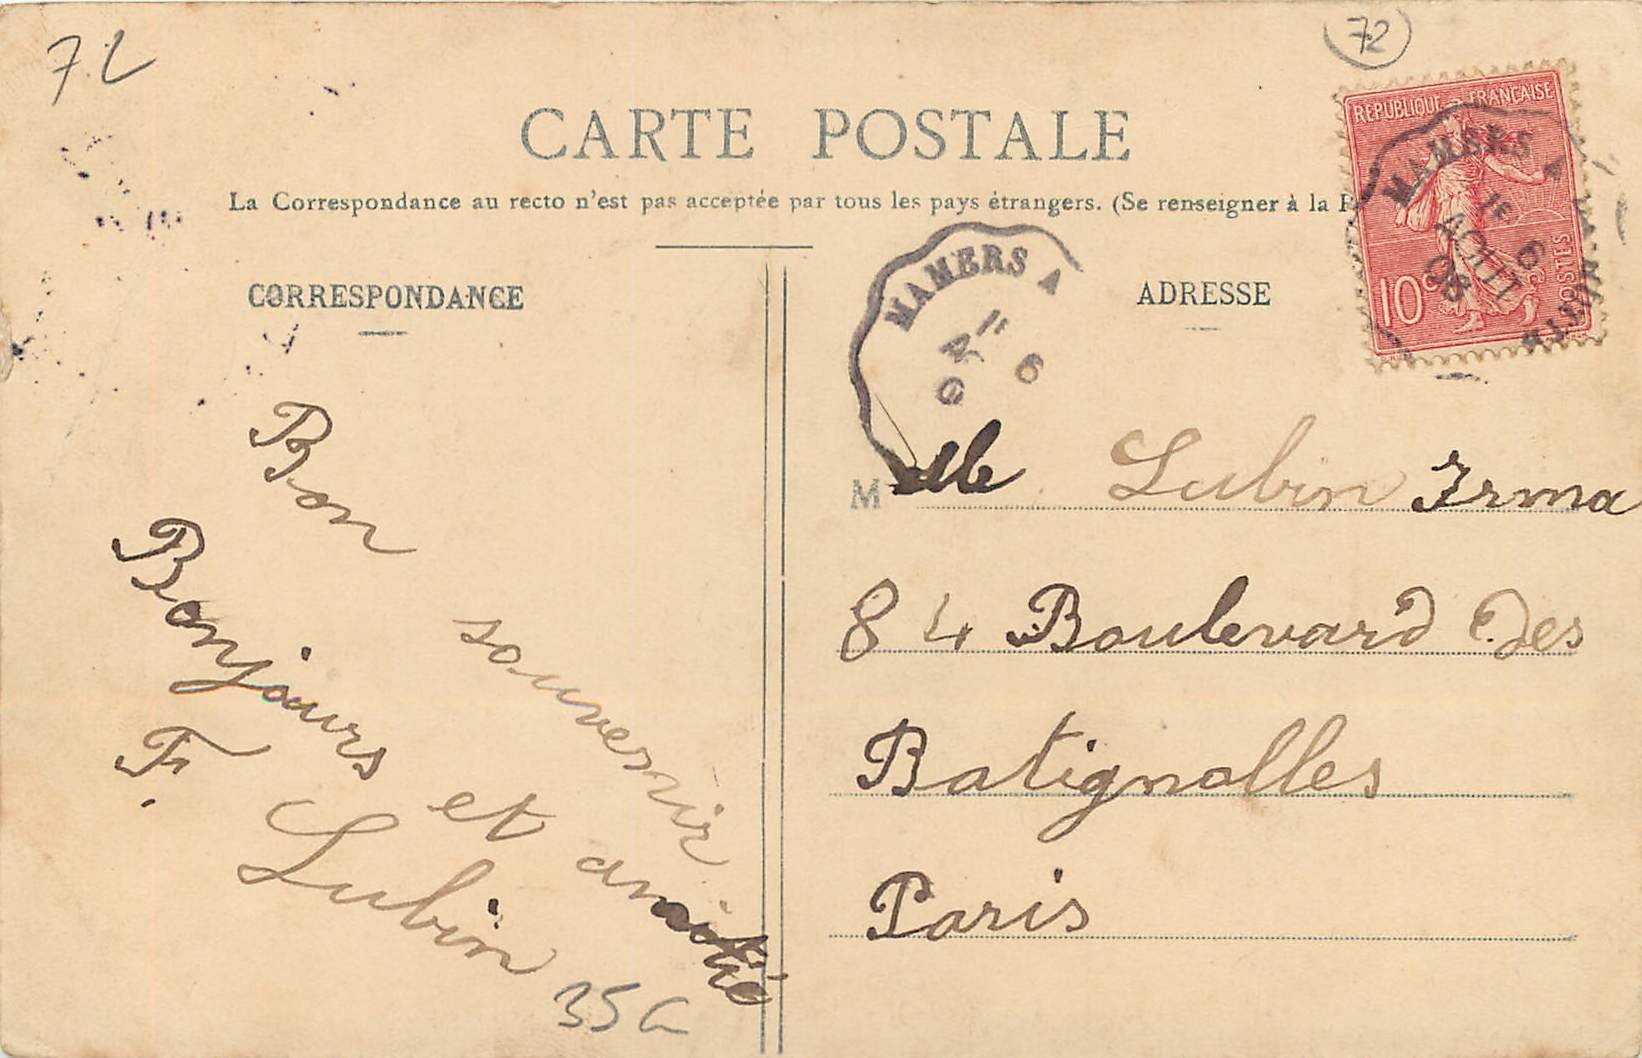 72
72
CARTE POSTALE
La Correspondance au recto n'est pas acceptée par tous les pays étrangers. (Se renseigner à la
CORRESPONDANCE
ADRESSE
REPUBLIQUE FRANÇAISE
POSTES
10c
MAMERS A
AOUT
MAMERS A
Bon souvenir
Bonjours et amitié
F. Lubin
35G
Melle Lubin Irma
84 Boulevard Des
Batignolles
Paris